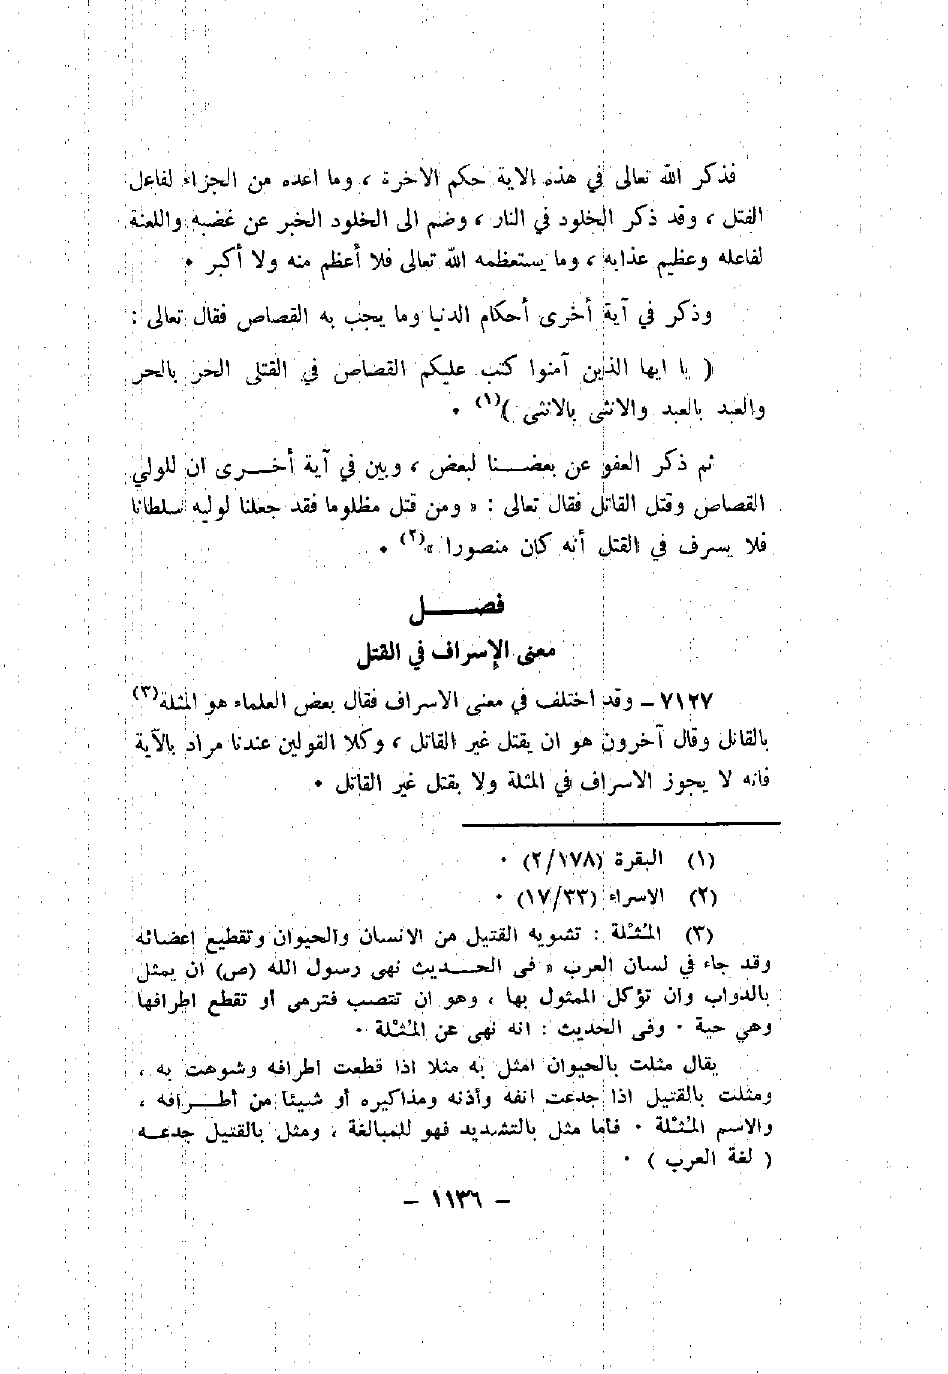 فذكر الله تعالى في هذه الاية حكم الاخرة ، وما اعده من الجزاء لفاعل
القتل ، وقد ذكر الخلود في النار ، وضم الى الخلود الخبر عن غضبه واللعنة
لفاعله وعظيم عذابه ، وما يستعظمه الله تعالى فلا أعظم منه ولا أكبر .
وذكر في آية أخرى أحكام الدنيا وما يجب به القصاص فقال تعالى :
( يا ايها الذين آمنوا كتب عليكم القصاص في القتلى الحر بالحر
والعبد بالعبد والانثى بالانثى )(١) .
ثم ذكر العفو عن بعضنا لبعض ، وبين في آية أخرى ان للولي
القصاص وقتل القاتل فقال تعالى : « ومن قتل مظلوما فقد جعلنا لوليه سلطانا
فلا يسرف في القتل أنه كان منصورا »(٢) .
فصل
معنى الإسراف في القتل
٧١٢٧ – وقد اختلف في معنى الاسراف فقال بعض العلماء هو المثلة(٣)
بالقاتل وقال آخرون هو ان يقتل غير القاتل ، وكلا القولين عندنا مراد بالآية
فانه لا يجوز الاسراف في المثلة ولا يقتل غير القاتل .
(١) البقرة (٢/١٧٨) .
(٢) الاسراء (١٧/٣٣) .
(٣) المُثْلة : تشويه القتيل من الانسان والحيوان وتقطيع اعضائه
وقد جاء في لسان العرب « فى الحديث نهى رسول الله (ص) ان يمثل
بالدواب وان تؤكل الممثول بها ، وهو ان تنصب فترمى أو تقطع اطرافها
وهي حية . وفى الحديث : انه نهى عن المُثْلة .
يقال مثلت بالحيوان امثل به مثلا اذا قطعت اطرافه وشوهت به ،
ومثلت بالقتيل اذا جدعت انفه وأذنه ومذاكيره أو شيئا من أطرافه ،
والاسم المُثْلة . فأما مثل بالتشديد فهو للمبالغة ، ومثل بالقتيل جدعه
( لغة العرب ) .
– ١١٣٦ –